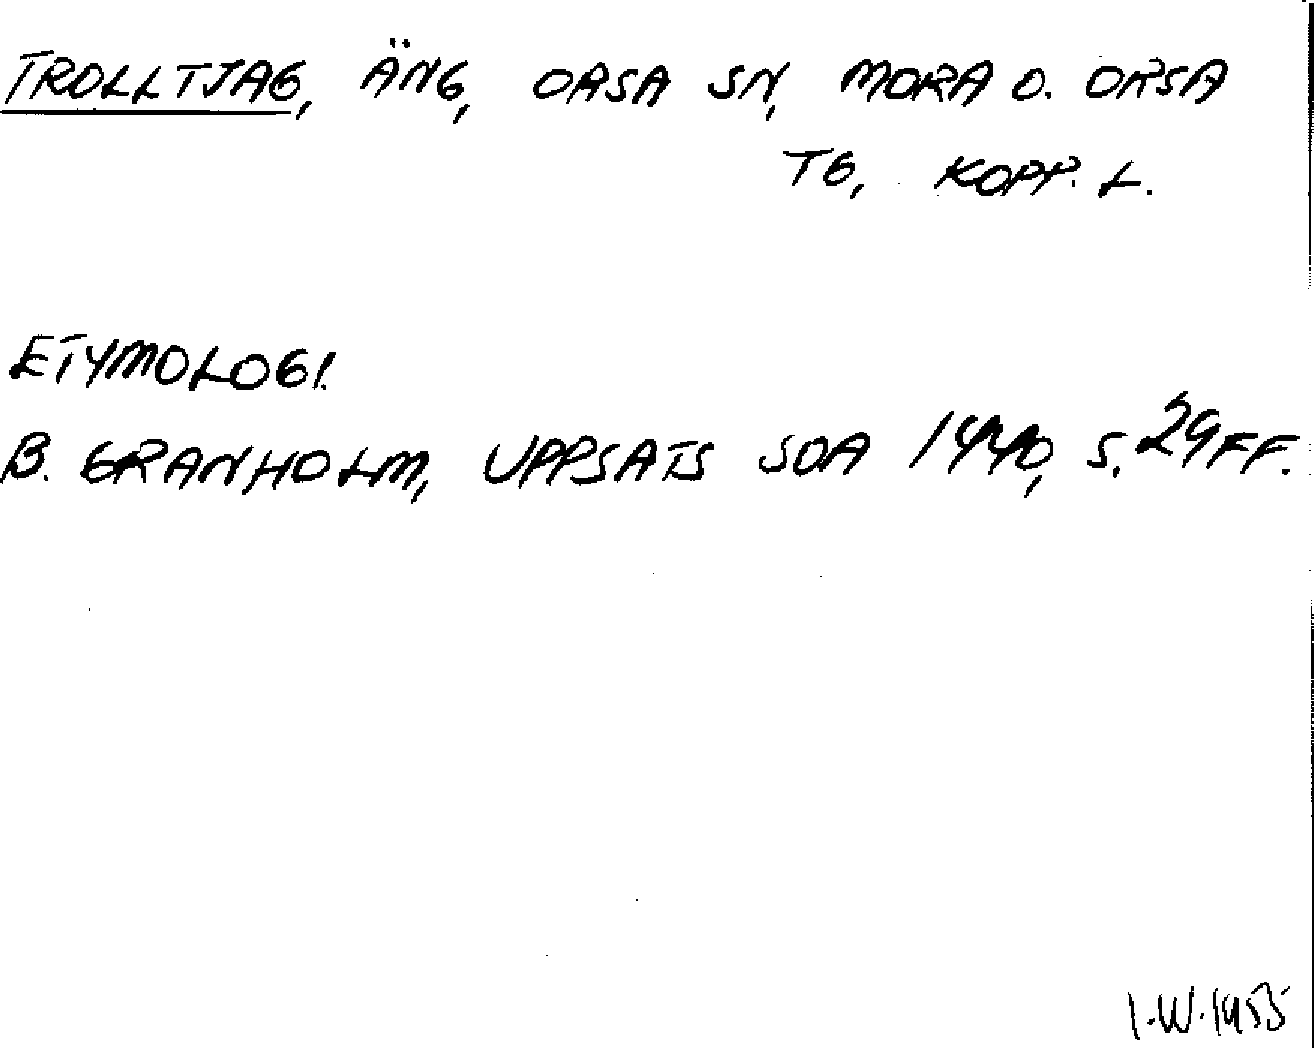 TROLLTJAG, ÄNG, ORSA SN, MORA O. ORSA
TG, KOPP. L.
ETYMOLOGI.
B. GRANHOLM, UPPSATS SOA 1940, S. 29 FF.
I.W. 1955